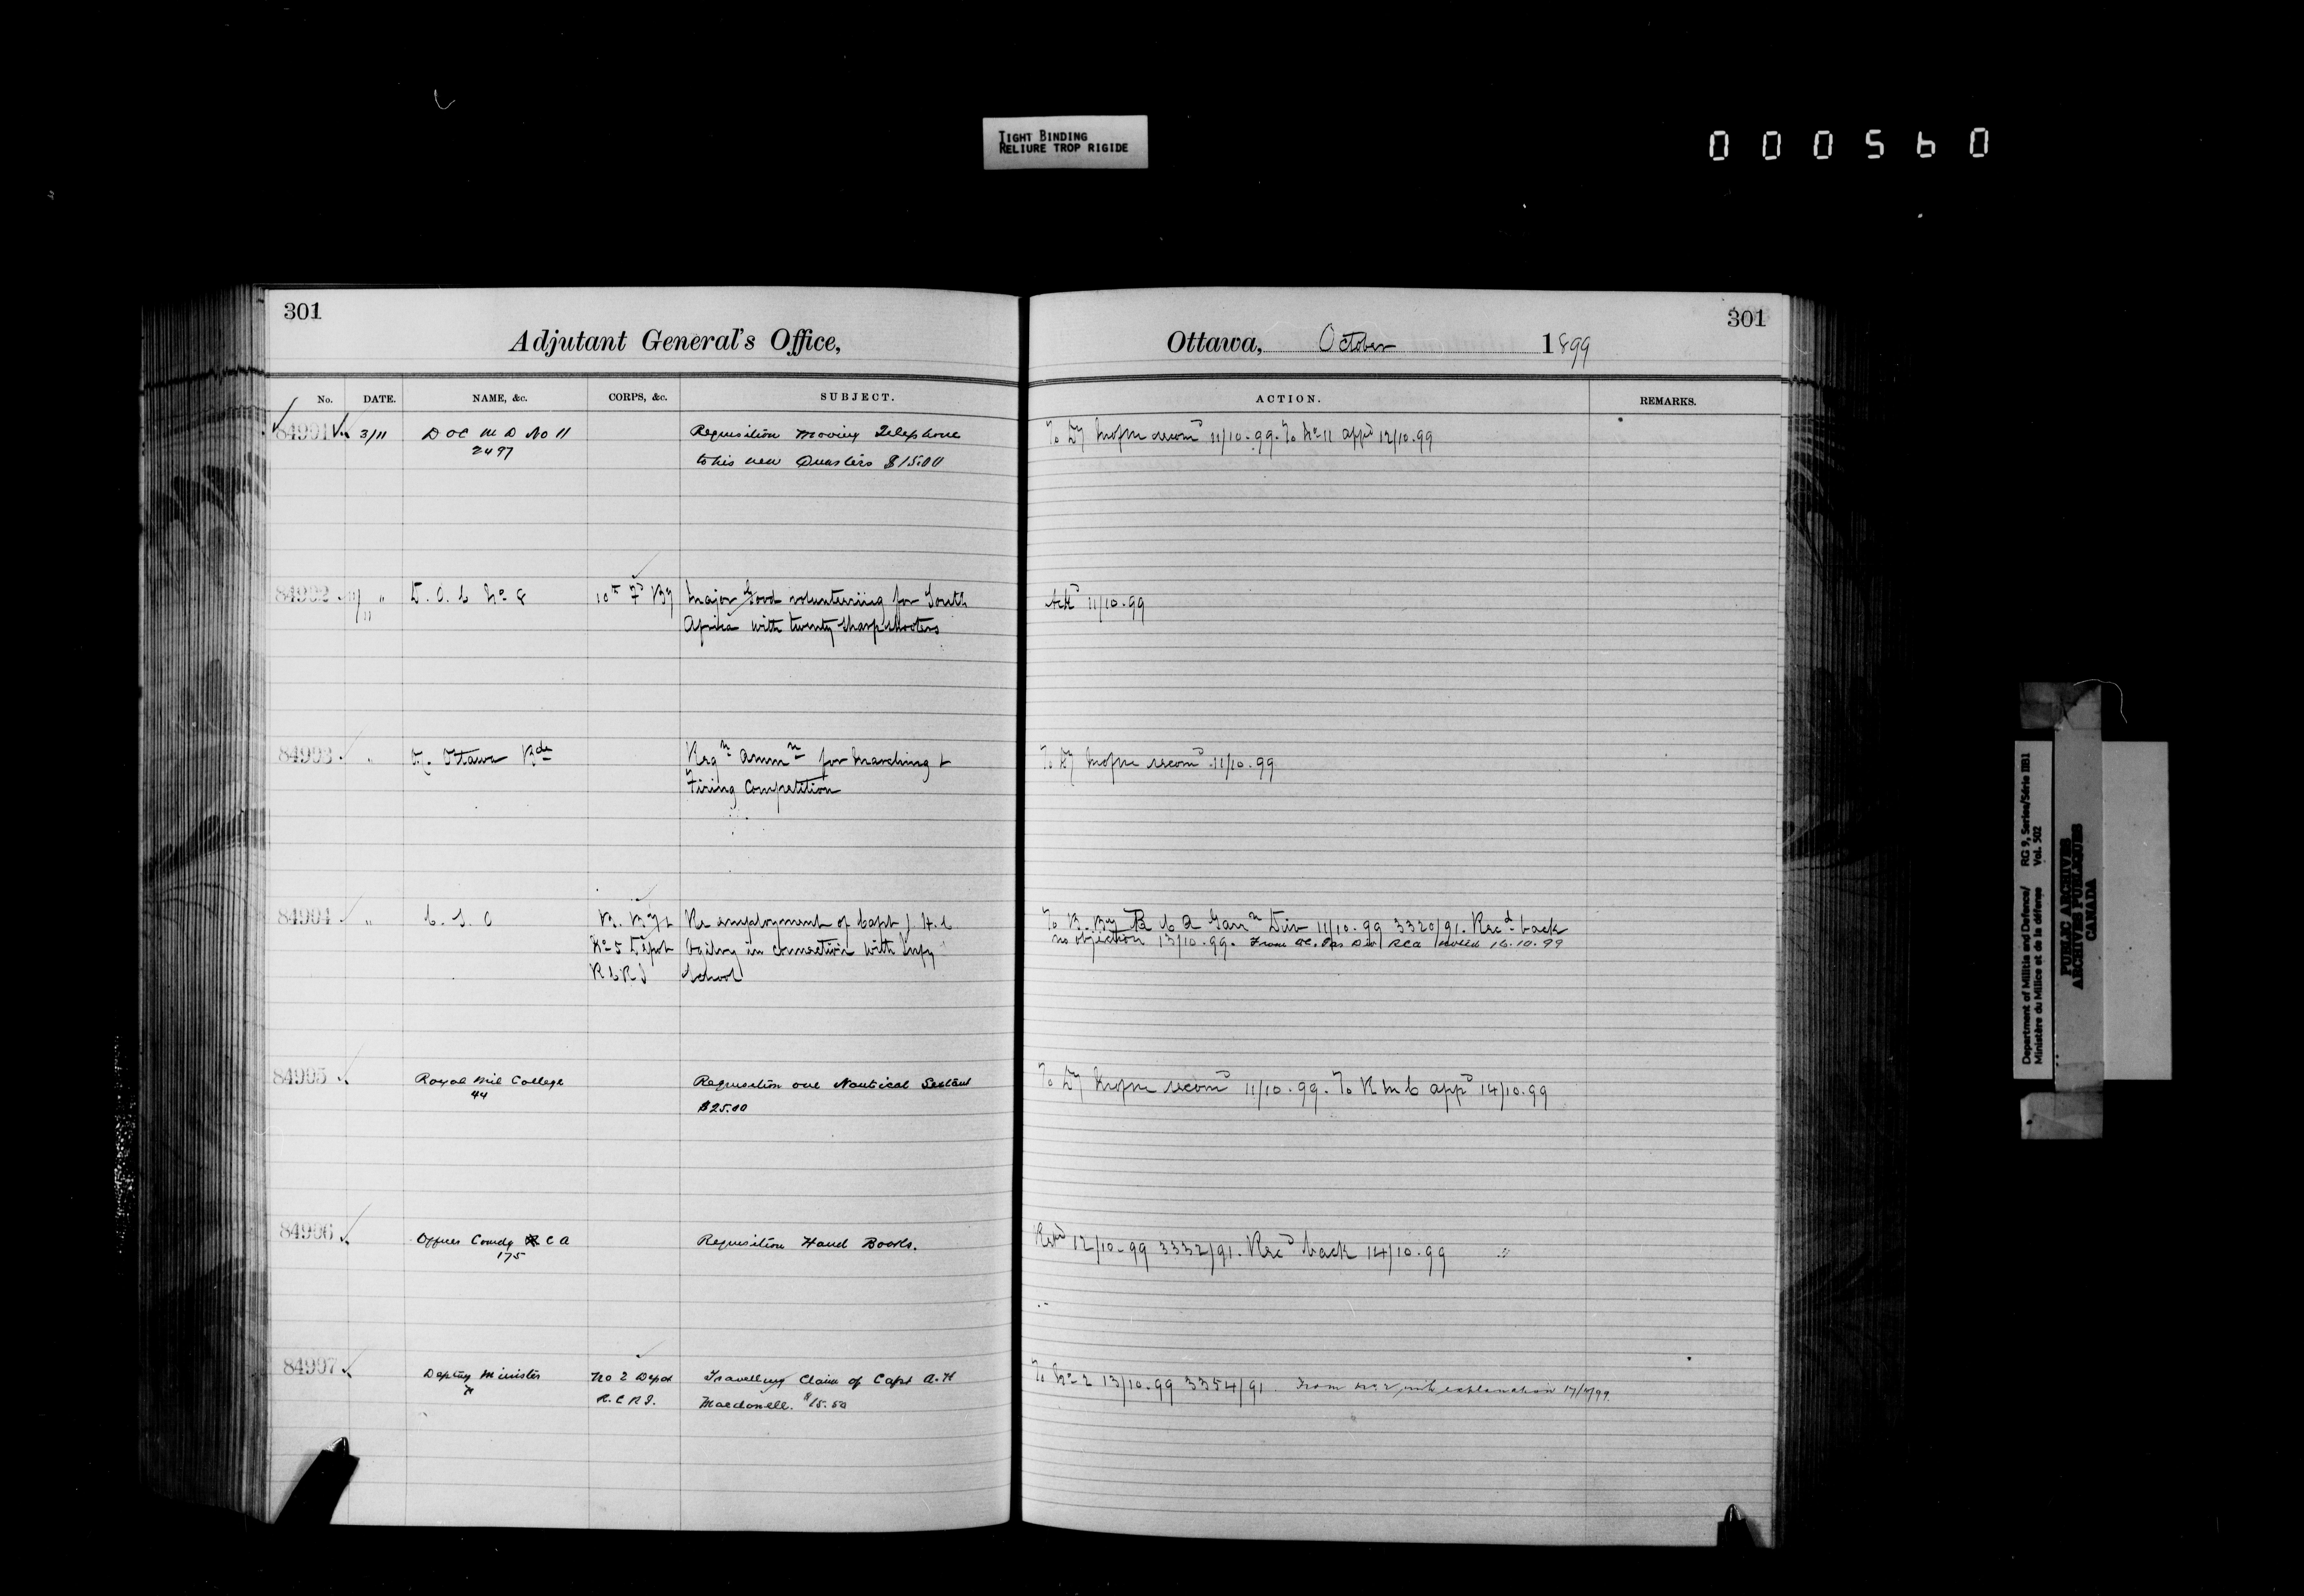 TIGHT BINDING
RELIURE TROP RIGIDE
000560
301
Adjutant General's Office,
No. DATE. NAME, &c. CORPS, &c. SUBJECT.
84901 3/11 D OC M D No 11 Requisition moving Telephone
2497
to his new Quarters $15.00
84902 " D.O.C No 8 10th Fd By Major Good volunteering for South
11
Africa with twenty sharpshooters
84903 " Ottawa Bde Reqn Ammn for Marching &
Firing Competition
84904 " C. S. O "B" By & Re employment of Capt J. H. C.
No 5 Depot Ogilvy in connection with Infy
R C R I School
84905 Royal Mil College Requisition one Nautical Sextant
44
$25.00
84906 Officer Comdg R C A Requisition Hand Books.
175
84907 Deputy Minister No 2 Depot Travelling Claim of Capt A. H
R. C R I. Macdonell. $15.50
301
Ottawa, October 1899
ACTION. REMARKS.
To recomd 11/10.99. To No 11 appd 12/10.99
Ackd 11/10.99
To recomd 11/10.99
To B. By R C A Garrn Div 11/10.99 3320/91. Recd back
no objection 13/10.99. From Div RCA 16.10.99
To recomd 11/10.99. To R M C appd 14/10.99
12/10.99 3332/91. Recd back 14/10.99
To No 2 13/10.99 3354/91. From No 2 with explanation 17/10/99.
Department of Militia and Defence/ RG 9, Series/Série IIB1
Ministère du Milice et de la défense Vol. 502
PUBLIC ARCHIVES
ARCHIVES PUBLIQUES
CANADA